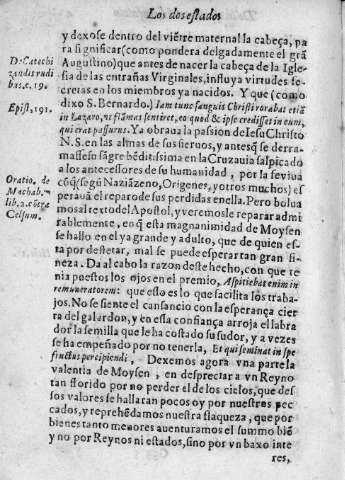 Los dos estados
y dexose dentro del viẽtre maternal la cabeça, pa
ra significar (como pondera delgadamente el grã
D. Catechi
zandis rudi
bus. c. 19.
Augustino) que antes de nacer la cabeça de la Igle
sia de las entrañas Virginales, influya virtudes se-
cretas en los miembros ya nacidos. Y que (como
Epist. 191.
dixo S. Bernardo.) Iam tunc sanguis Christi rorabat etiã
in Lazaro, ne flãmas sentiret, eo quod & ipse credisset in eum,
qui erat passurus. Ya obraua la passion de Iesu Christo
N. S. en las almas de sus sieruos, y antes q̃ se derra-
masse su sãgre bẽditissima en la Cruz auia salpicado
a los antecessores de su humanidad, por la fe viua
Oratio. de
Machab.
lib. 2. cõtra
Celsum.
cõ q̃ (segũ Naziãzeno, Origenes, y otros muchos) es
peraua el reparo de sus perdidas en ella. Pero bolua
mos al texto del Apostol, y veremosle reparar admi
rablemente, en q̃ esta magnanimidad de Moysen
se hallo en el ya grande y adulto, que de quien es-
ta por destetar, mal se puede esperar tan gran fi-
neza. Da al cabo la razon deste hecho, con que te
nia puestos los ojos en el premio, Aspiciebat enim in
remuneratorem: que esto es lo que facilita los traba-
jos. No se siente el cansancio con la esperança cier
ta del galardon, y en esta confiança arroja el labra
dor la semilla que le ha costado su sudor, y a vezes
se ha empeñado por no tenerla, Et qui seminat in spe
fructus percipiendi. Dexemos agora vna parte la
valentia de Moysen, en despreciar a vn Reyno
tan florido por no perder el de los cielos, que des
sos valores se hallaran pocos oy por nuestros pec
cados, y reprehẽdamos nuestra flaqueza, que por
bienes tanto menores auenturamos el summo biẽ
y no por Reynos ni estados, sino por vn baxo inte
res,